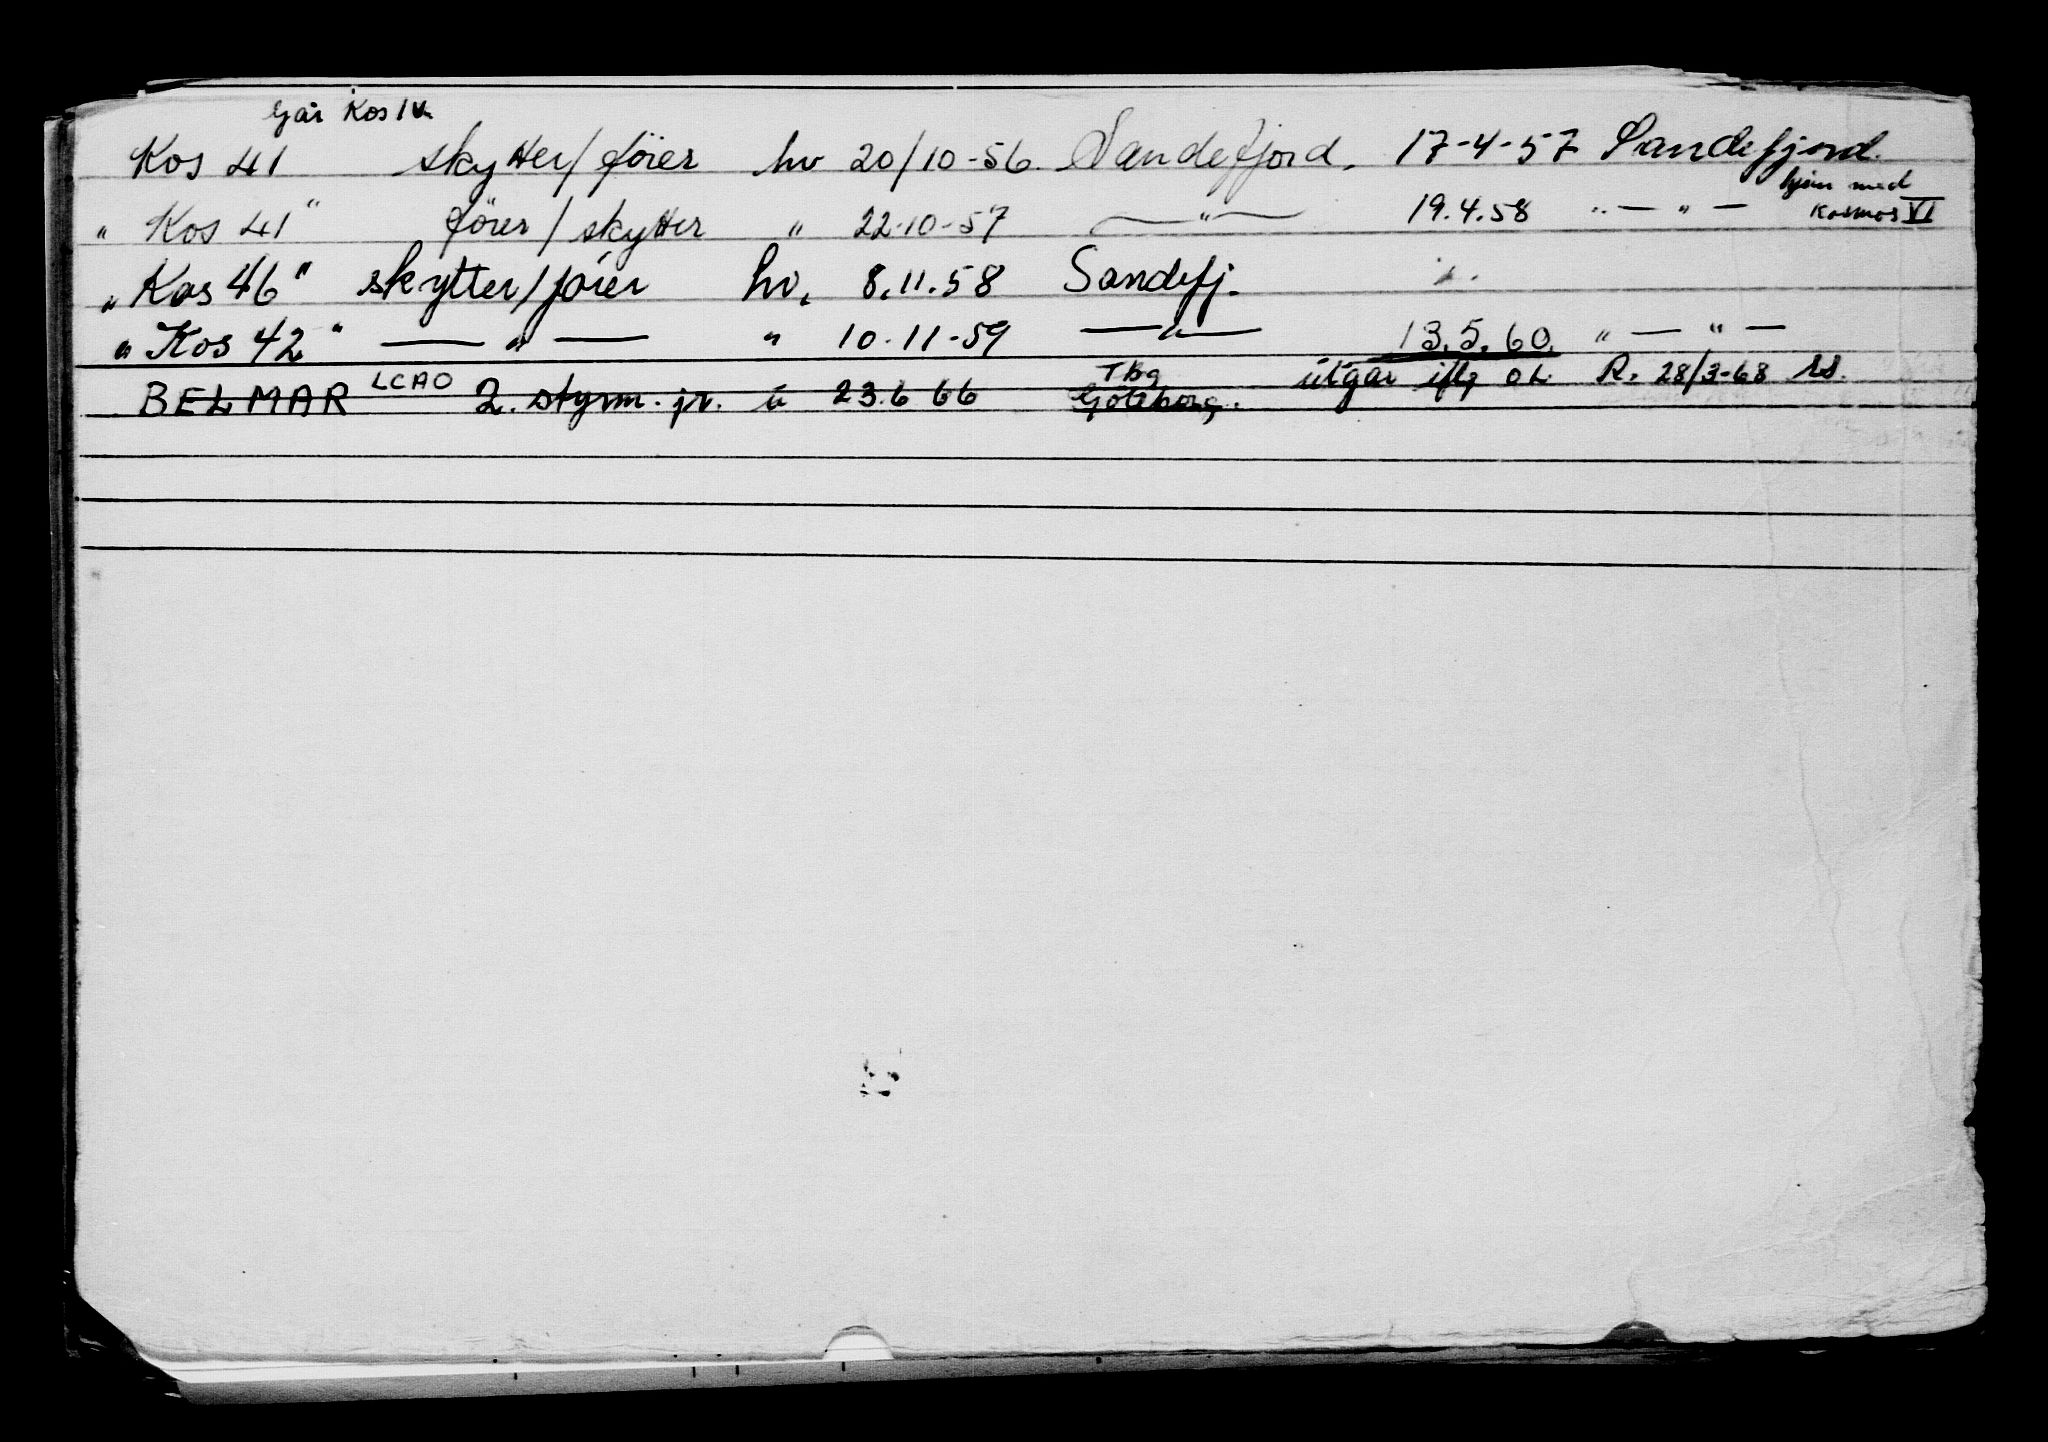 Går Kos IV.
Kos 41 skytter/fører hv 20/10-56. Sandefjord. 17-4-57 Sandefjord.
" Kos 41 " fører/skytter " 22-10-57 — " — 19.4.58 " — " — hjem med Kosmos VI
" Kos 46 " skytter/fører hv. 8.11.58 Sandefj.
" Kos 42 " — " — " 10-11-59 — " — 13.5.60. " — " —
BELMAR LCAO 2. styrm. jr. u 23.6 66 Tbg Göteborg. utgår iflg OL R. 28/3-68